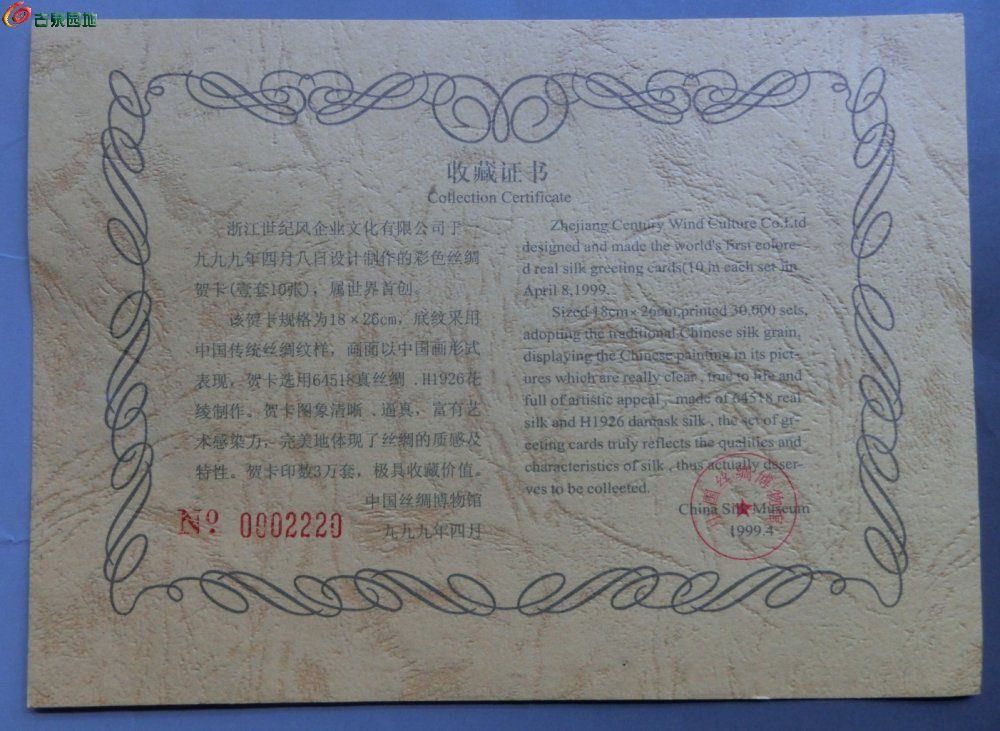 古泉园地
收藏证书
Collection Certificate
浙江世纪风企业文化有限公司于一
九九九年四月八日设计制作的彩色丝绸
贺卡(壹套10张)，属世界首创。
该贺卡规格为18×26cm，底纹采用
中国传统丝绸纹样，画面以中国画形式
表现，贺卡选用64518真丝绸﹑H1926花
绫制作。贺卡图象清晰﹑逼真，富有艺
术感染力，完美地体现了丝绸的质感及
特性。贺卡印数3万套，极具收藏价值。
中国丝绸博物馆
一九九九年四月
Nº 0002220
Zhejiang Century Wind Culture Co.Ltd
designed and made the world's first colore-
d real silk greeting cards(10 in each set )in
April 8,1999.
Sized 18cm×26cm,printed 30,000 sets,
adopting the traditional Chinese silk grain,
displaying the Chinese painting in its pict-
ures which are really clear , true to life and
full of artistic appeal , made of 64518 real
silk and H1926 damask silk , the set of gr-
eeting cards truly reflects the qualities and
characteristics of silk , thus actually deser-
ves to be collected.
China Silk Museum
1999.4
中国丝绸博物馆